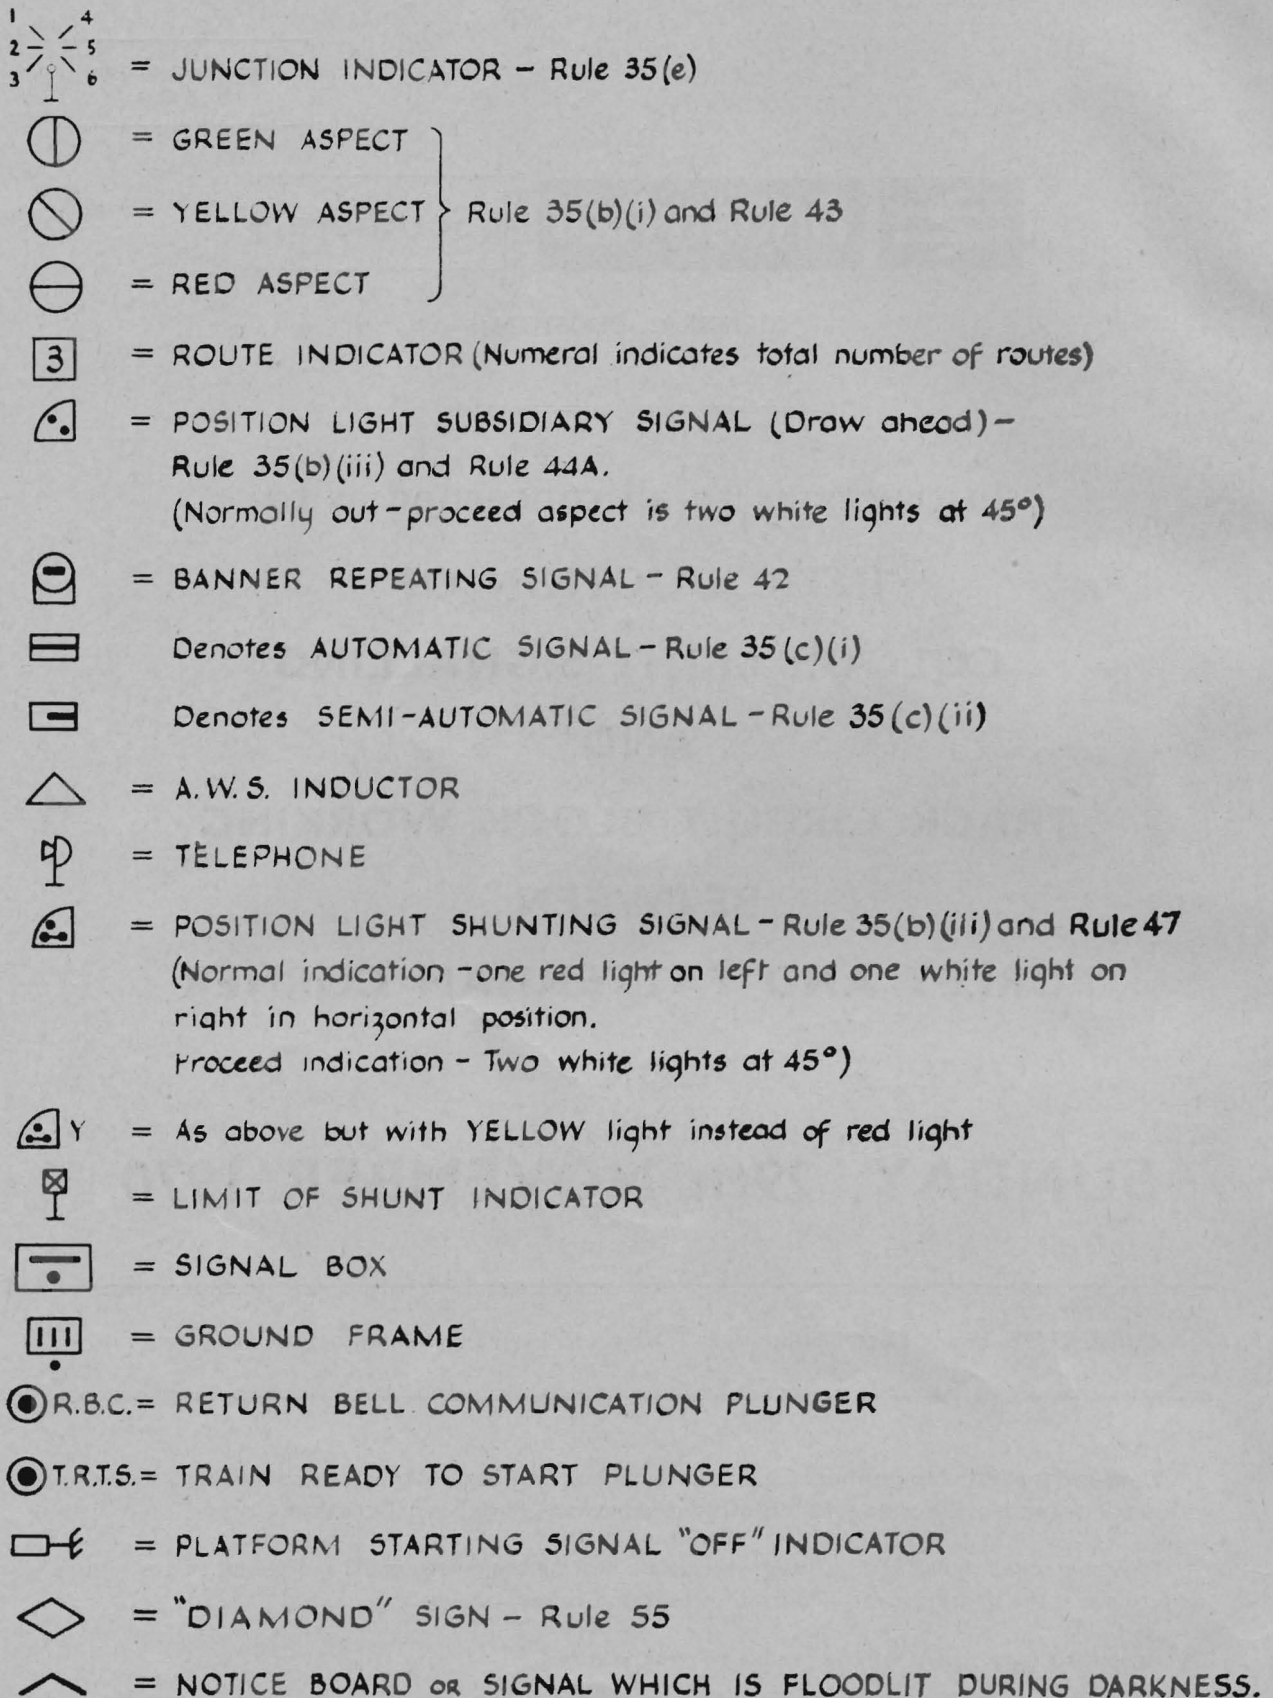 1 4
2 5
3 6
= JUNCTION INDICATOR - Rule 35(e)
= GREEN ASPECT
= YELLOW ASPECT Rule 35(b)(i) and Rule 43
= RED ASPECT
3 = ROUTE INDICATOR (Numeral indicates total number of routes)
= POSITION LIGHT SUBSIDIARY SIGNAL (Draw ahead) -
Rule 35(b)(iii) and Rule 44A.
(Normally out - proceed aspect is two white lights at 45°)
= BANNER REPEATING SIGNAL - Rule 42
Denotes AUTOMATIC SIGNAL - Rule 35(c)(i)
Denotes SEMI-AUTOMATIC SIGNAL - Rule 35(c)(ii)
= A.W.S. INDUCTOR
= TELEPHONE
= POSITION LIGHT SHUNTING SIGNAL - Rule 35(b)(iii) and Rule 47
(Normal indication - one red light on left and one white light on
right in horizontal position.
Proceed indication - Two white lights at 45°)
Y = As above but with YELLOW light instead of red light
= LIMIT OF SHUNT INDICATOR
= SIGNAL BOX
= GROUND FRAME
R.B.C. = RETURN BELL COMMUNICATION PLUNGER
T.R.T.S. = TRAIN READY TO START PLUNGER
= PLATFORM STARTING SIGNAL "OFF" INDICATOR
= "DIAMOND" SIGN - Rule 55
= NOTICE BOARD OR SIGNAL WHICH IS FLOODLIT DURING DARKNESS.